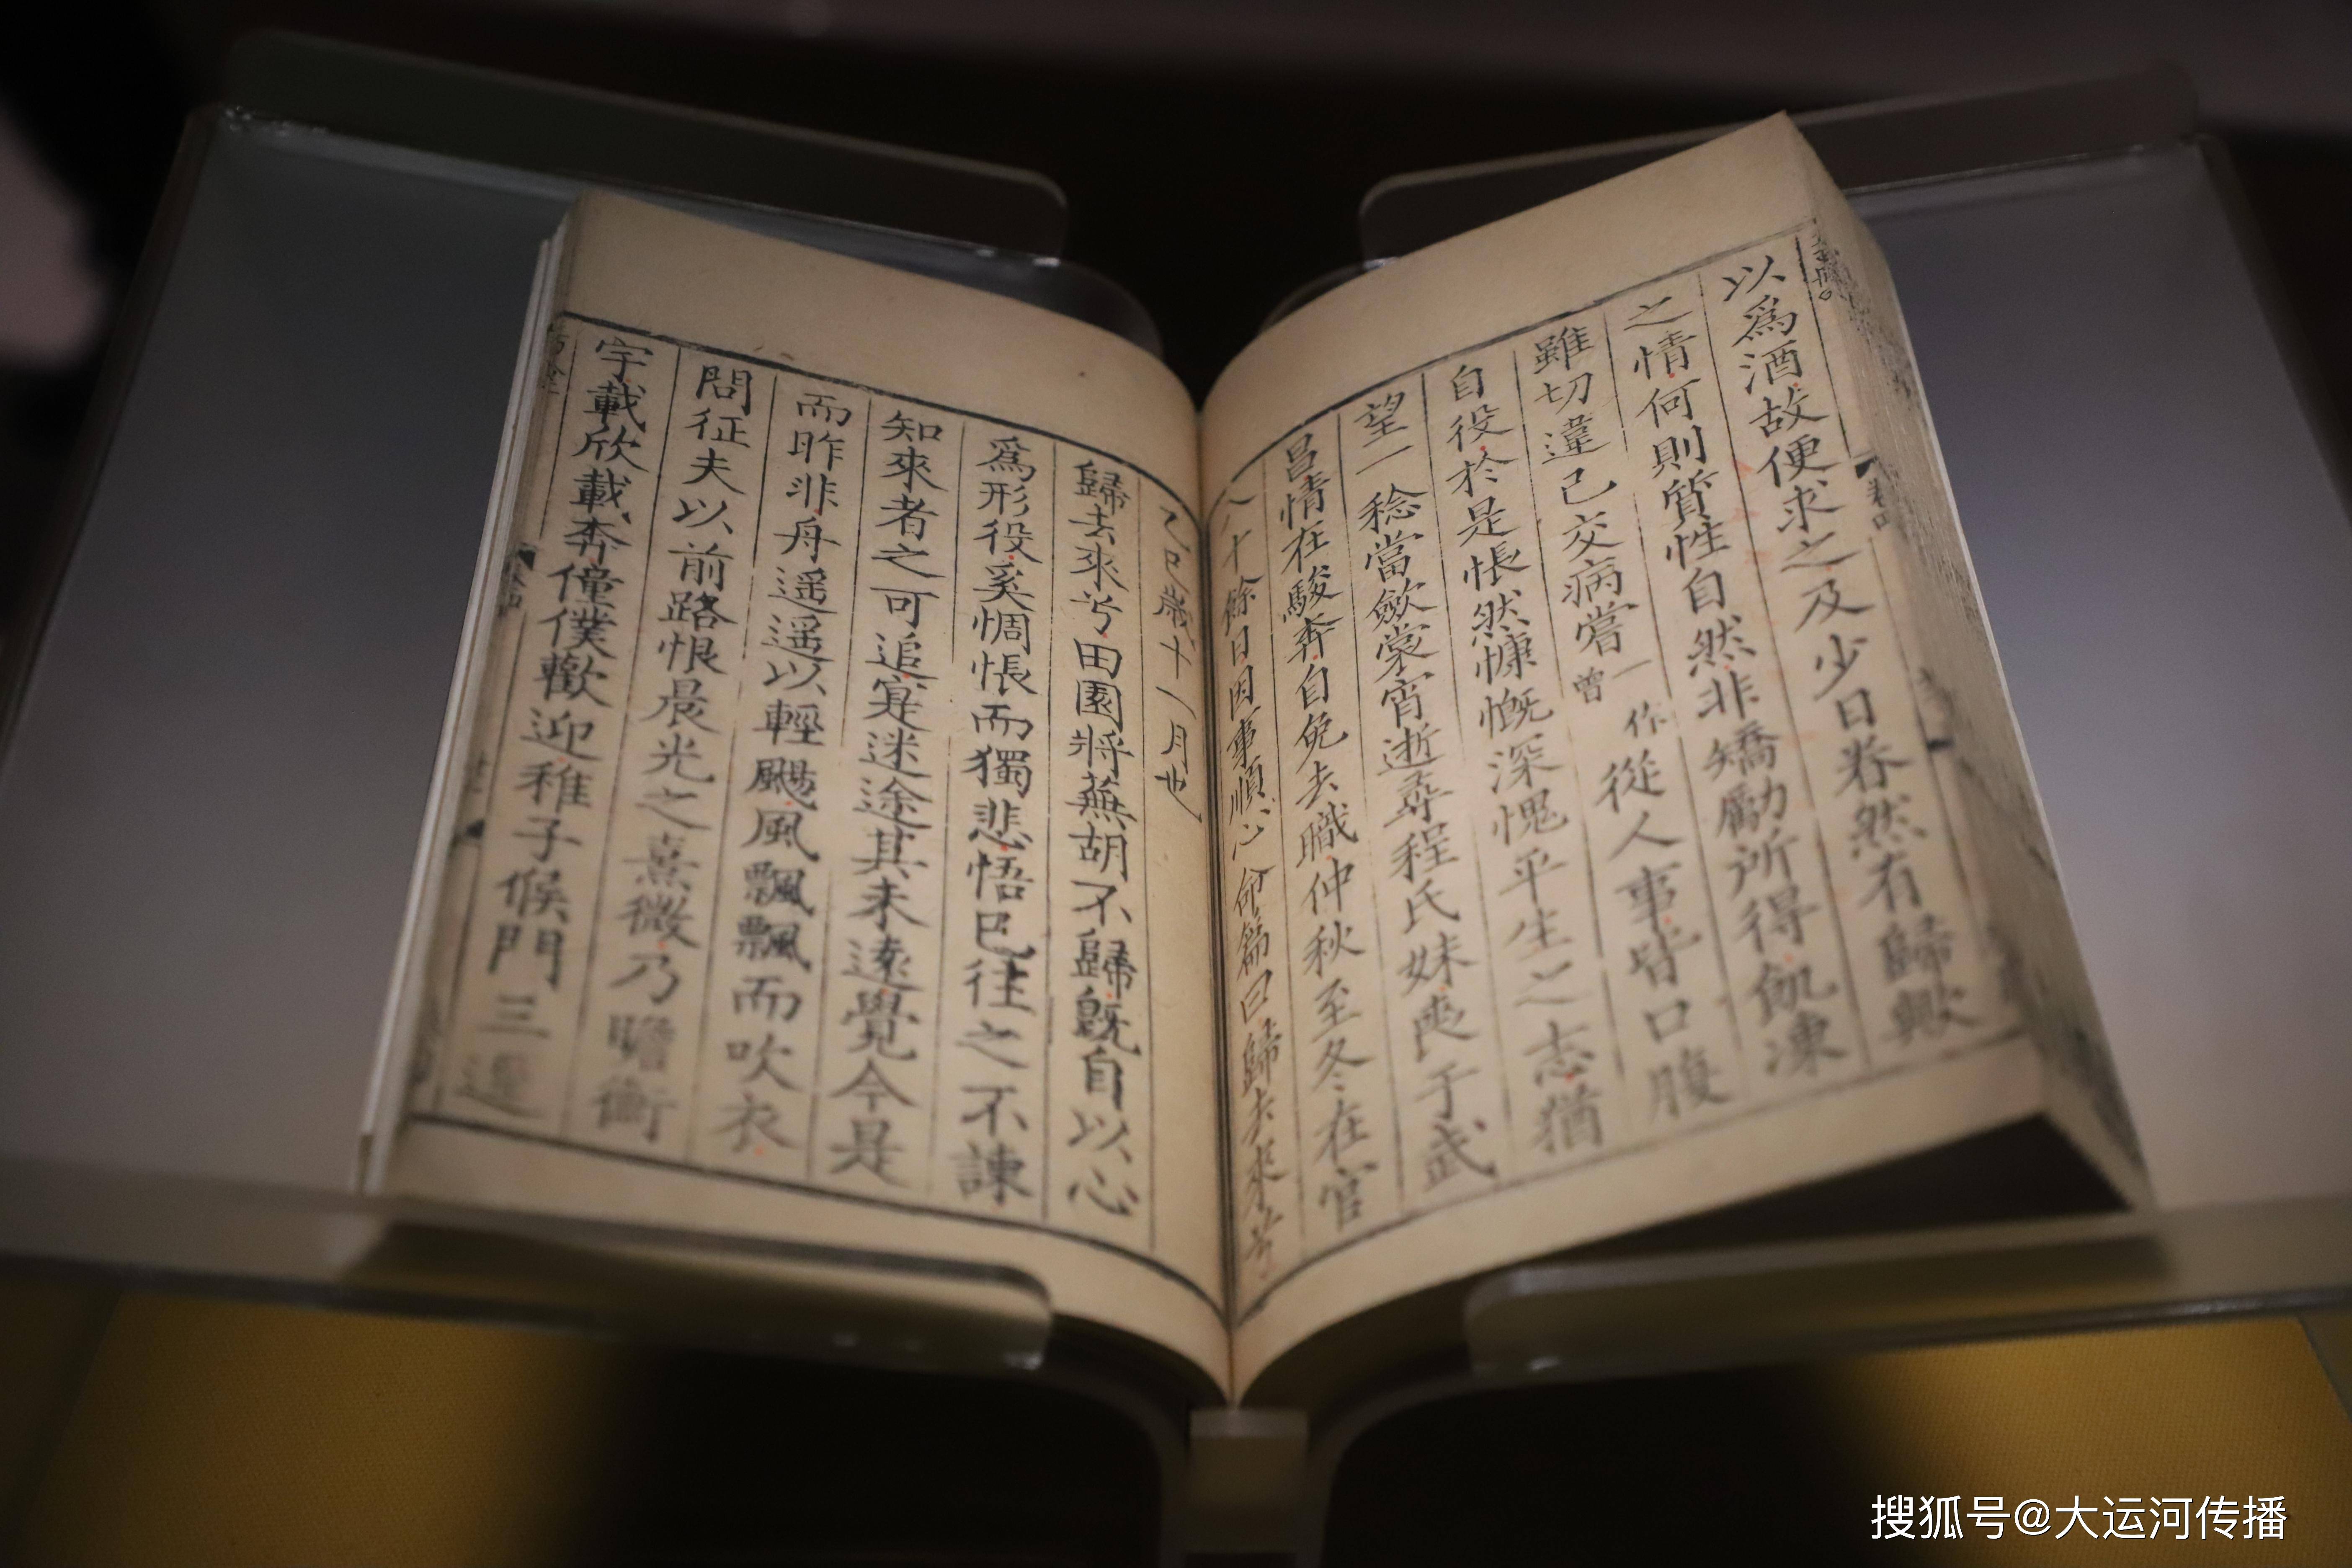 以爲酒故便求之及少日眷然有歸歟
之情何則質性自然非矯勵所得飢凍
雖切違己交病嘗一作曾從人事皆口腹
自役於是悵然慷慨深愧平生之志猶
望一稔當斂裳宵逝尋程氏妹喪于武
昌情在駿奔自免去職仲秋至冬在官
八十餘日因事順心命篇曰歸去來兮
乙巳歲十一月也
歸去來兮田園將蕪胡不歸旣自以心
爲形役奚惆悵而獨悲悟已往之不諫
知來者之可追寔迷途其未遠覺今是
而昨非舟遥遥以輕颺風飄飄而吹衣
問征夫以前路恨晨光之熹微乃瞻衡
宇載欣載奔僮僕歡迎稚子候門三逕
搜狐号@大运河传播